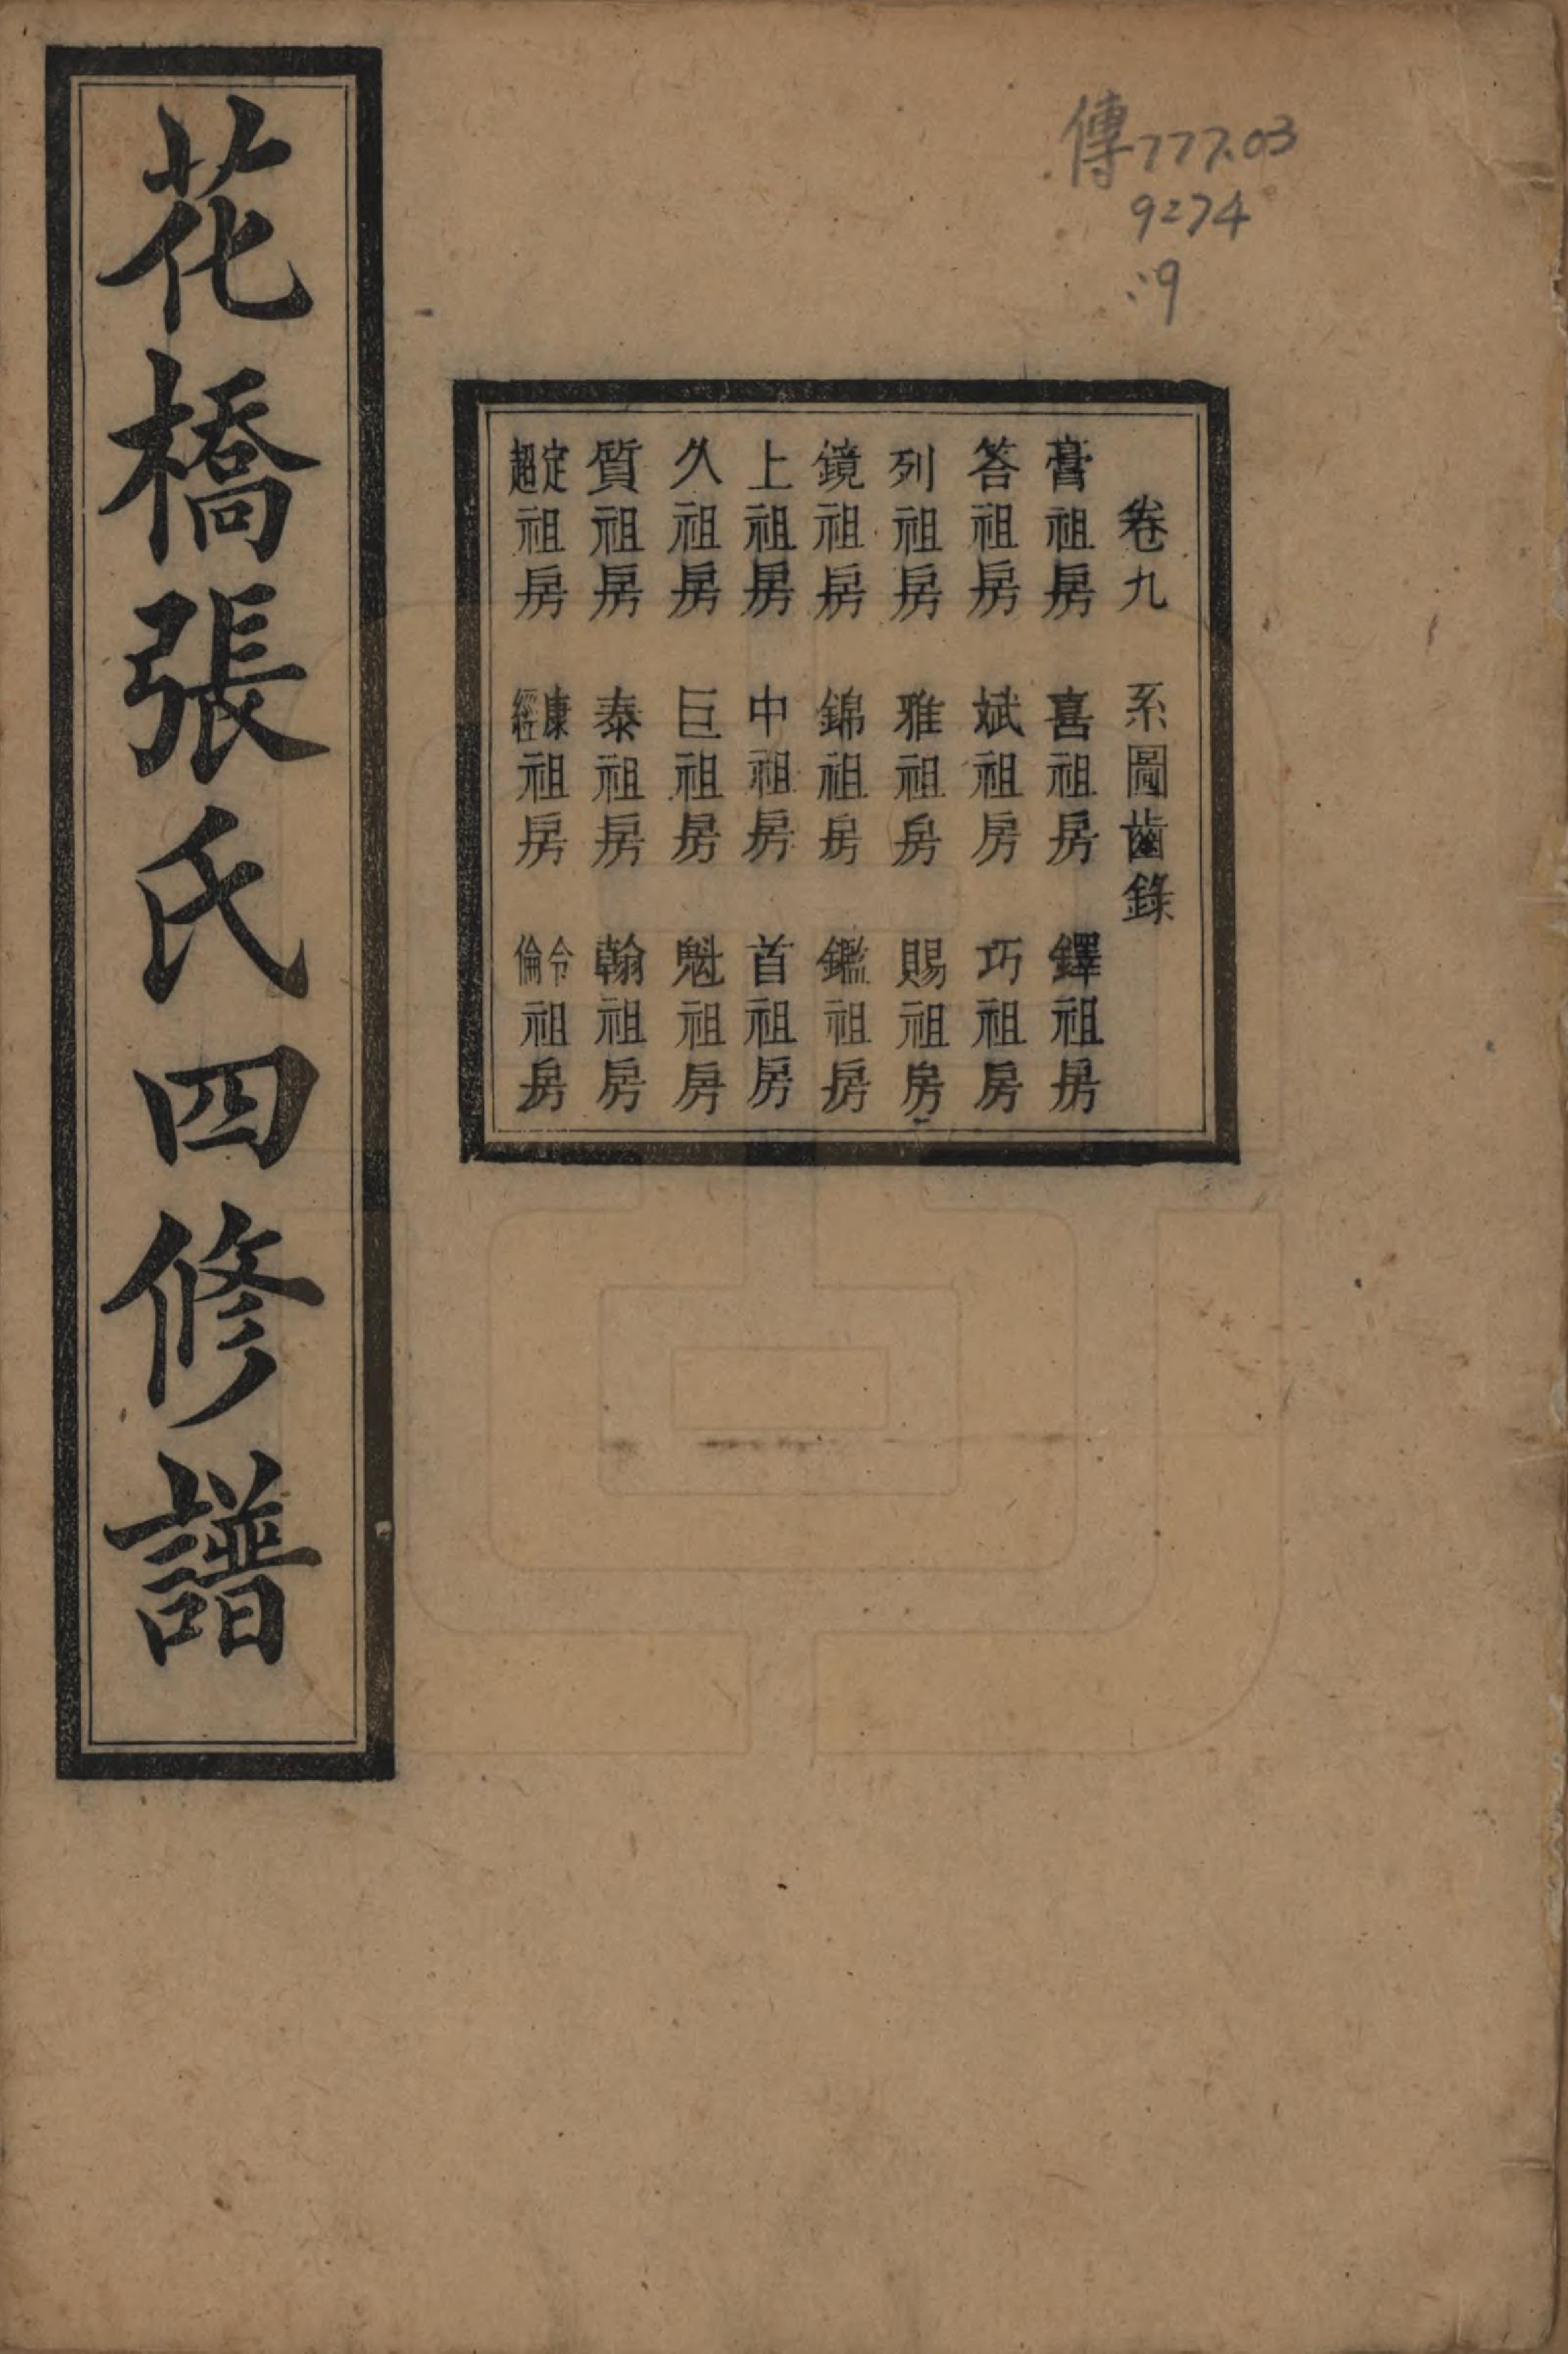 傳777.03
9274
:9
卷九 系圖齒錄
膏祖房 喜祖房 鐸祖房
答祖房 斌祖房 巧祖房
列祖房 雅祖房 賜祖房
鏡祖房 錦祖房 鑑祖房
上祖房 中祖房 首祖房
久祖房 巨祖房 魁祖房
質祖房 泰祖房 翰祖房
定超祖房 康經祖房 令倫祖房
花橋張氏四修譜